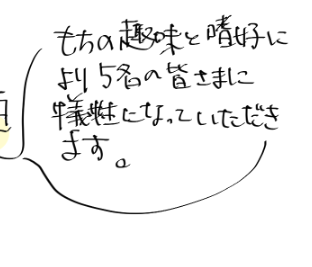 もちの趣味と嗜好に
より5名の皆さまに
犠牲になっていただき
ます。